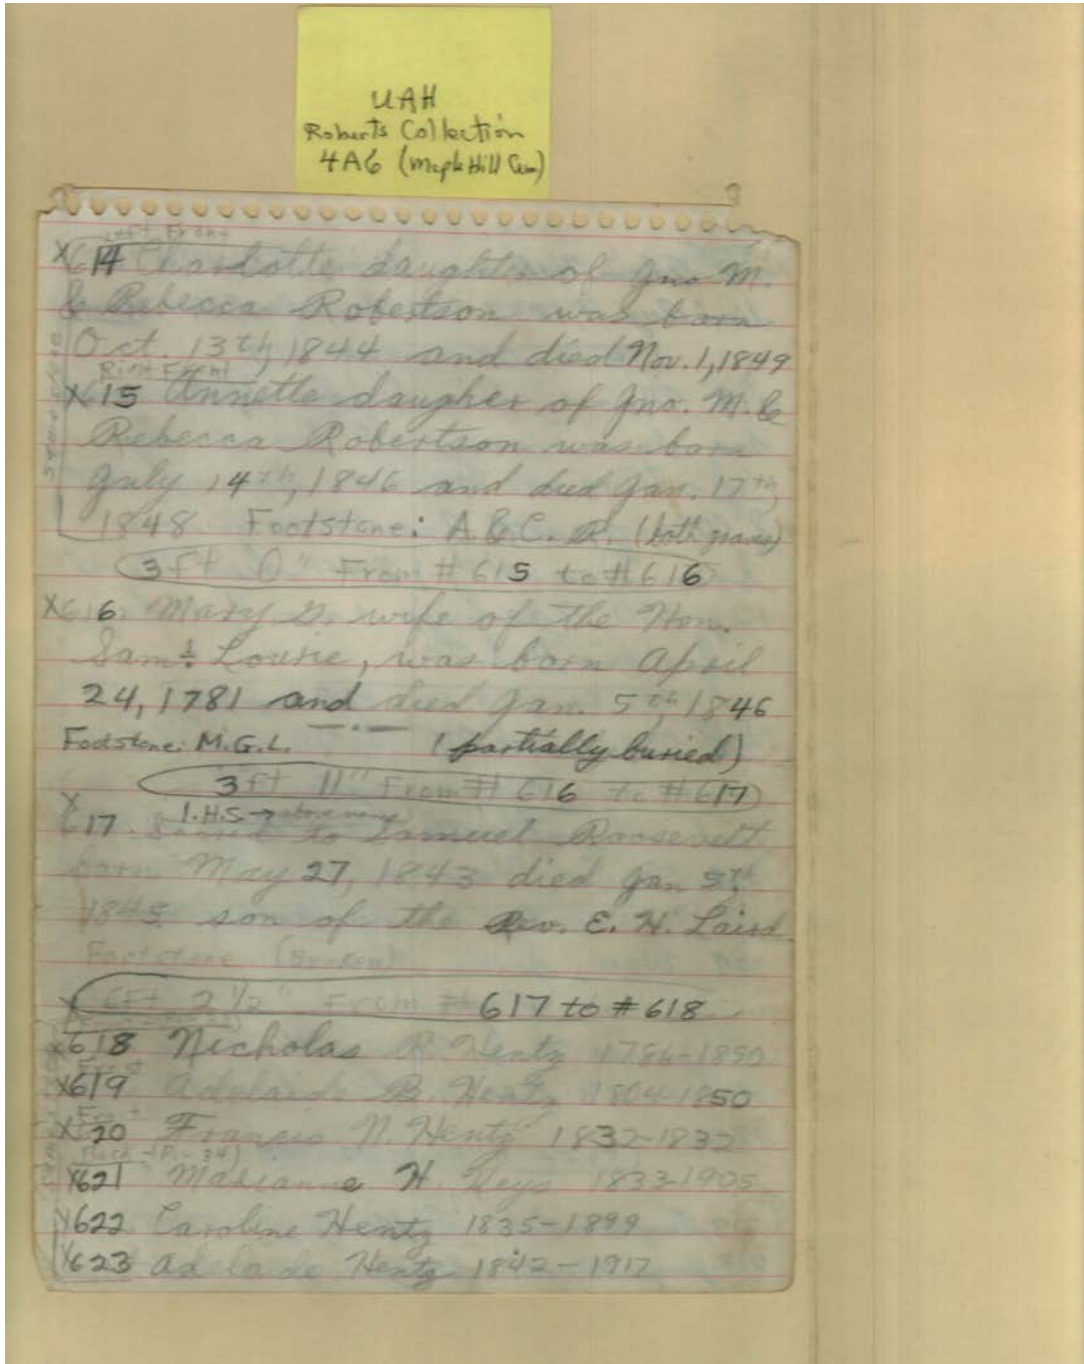 UAH
Roberts Collection
4A6 (Maple Hill Cem)
Left Front
X614 Charlotte daughter of Jno M.
& Rebecca Robertson was born
Oct. 13th, 1844 and died Nov. 1, 1849
Right Front
X615 Annette daugher of Jno. M. &
Rebecca Robertson was born
July 14th, 1846 and died Jan. 17th,
1848 Footstone: A. & C. R. (both graves)
3ft 0" From #615 to #616
X616. Mary G. wife of the Hon.
Saml. Lourie, was born April
24, 1781 and died Jan. 5th, 1846
Footstone: M.G.L. (partially buried)
3ft 11" From #616 to #617
X I.H.S → above name
617. Sacred to Samuel Roosevelt
born May 27, 1843 died Jan 5th
1845 son of the Rev. E. H. Laird
Footstone (Broken)
6ft 2 1/2" From # 617 to #618
X618 Nicholas R Hentz 1786-1850
Front
X619 Adelaide B. Hentz 1804-1850
Front
X620 Francis N. Hentz 1832-1832
Back
X621 Marianne H. Keys 1833-1905
X622 Caroline Hentz 1835-1899
X623 Adelaide Hentz 1842-1917